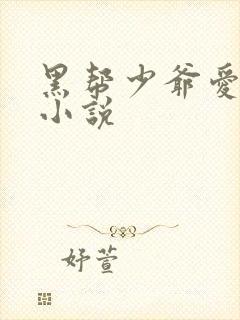 黑帮少爷愛
小說
妤萱